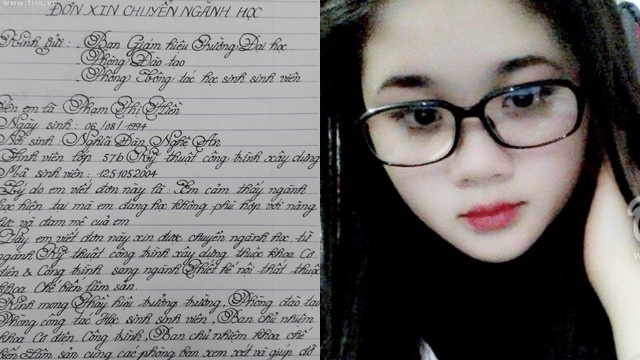 www.tiin.vn
ĐƠN XIN CHUYỂN NGÀNH HỌC
Kính gửi : Ban Giám hiệu Trường Đại học
Phòng Đào tạo
Phòng Công tác học sinh sinh viên
Tên em là : Phạm Thị Hiền
Ngày sinh : 06/08/1994
Nơi sinh : Nghĩa Đàn, Nghệ An
Sinh viên lớp : 57b Kỹ thuật công trình xây dựng
Mã sinh viên : 1251052004
Lý do em viết đơn này là : Em cảm thấy ngành
học hiện tại mà em đang học không phù hợp với năng
lực và đam mê của em
Nay em viết đơn này xin được chuyển ngành học từ
ngành Kỹ thuật công trình xây dựng thuộc khoa Cơ
điện & Công trình sang ngành Thiết kế nội thất thuộc
khoa Chế biến lâm sản.
Kính mong Thầy hiệu trưởng trường, Phòng đào tạo
Phòng công tác Học sinh sinh viên, Ban chủ nhiệm
khoa Cơ điện. Công trình, Ban chủ nhiệm khoa chế
biến Lâm sản cùng các phòng ban xem xét và giúp đỡ